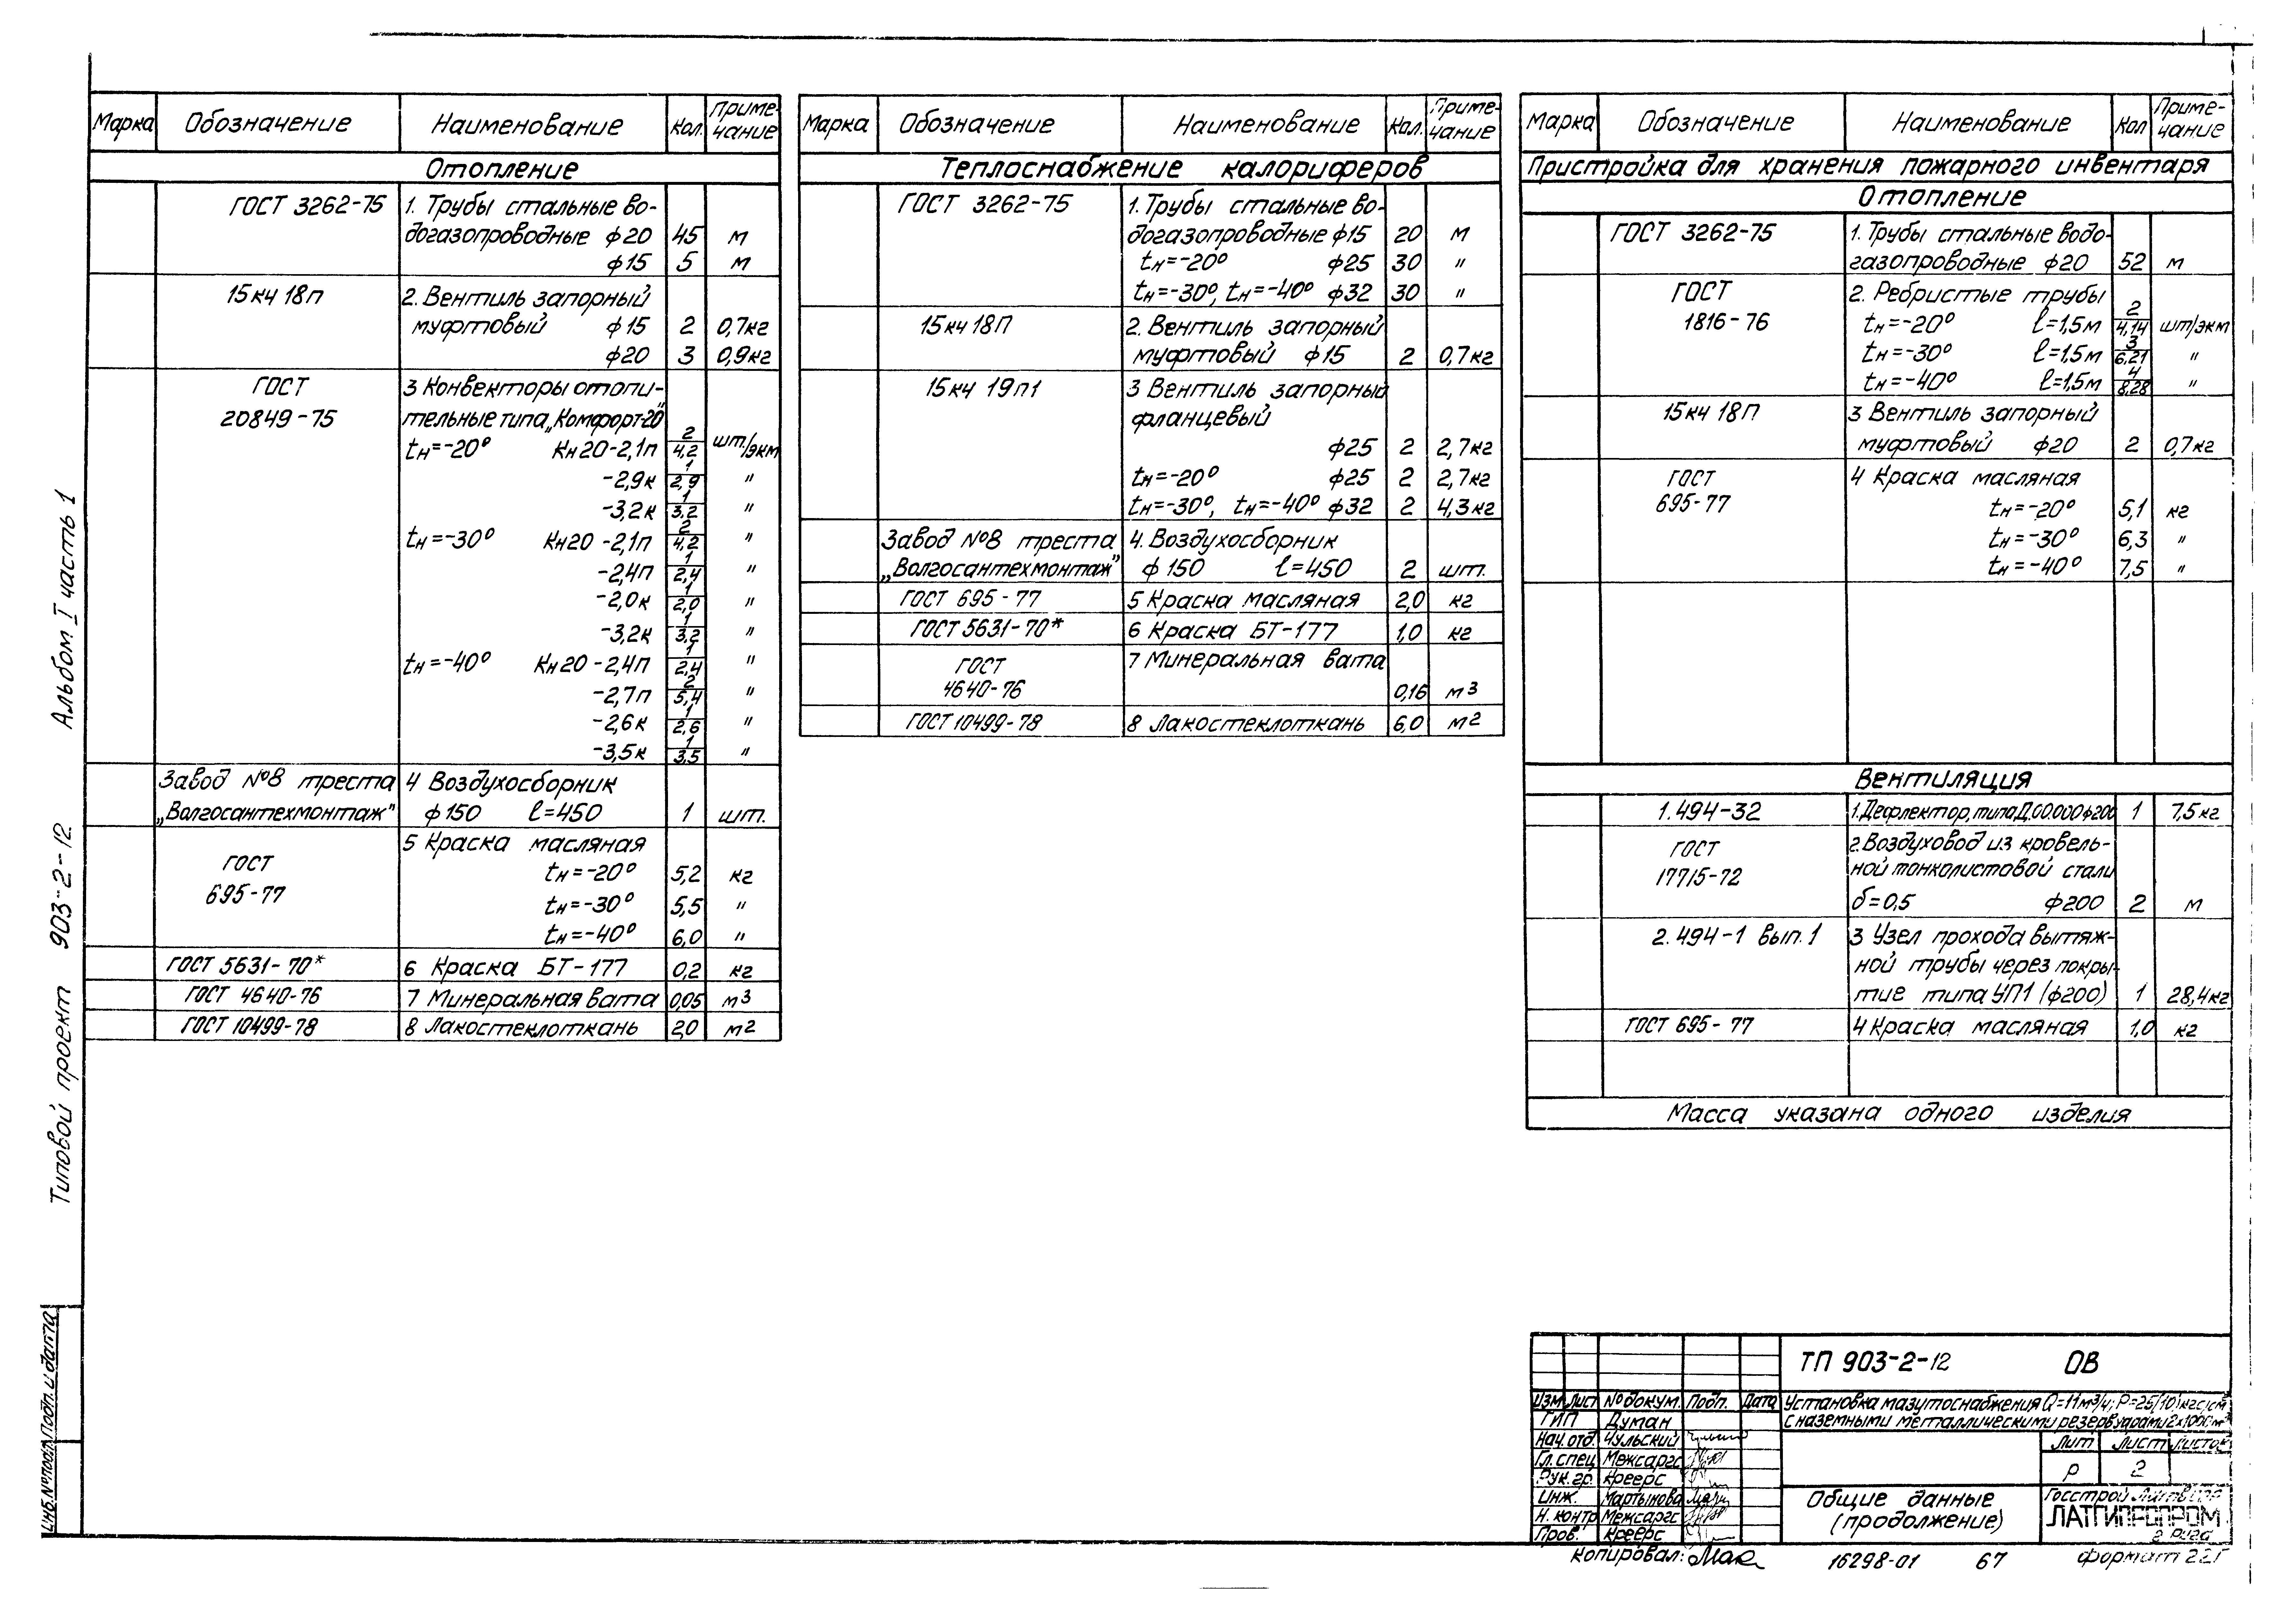 Марка Обозначение Наименование Кол. Приме-чание
Отопление
ГОСТ 3262-75 1. Трубы стальные во-
догазопроводные ф20 45 м
ф15 5 м
15кч 18п 2. Вентиль запорный
муфтовый ф15 2 0,7кг
ф20 3 0,9кг
ГОСТ 3 Конвекторы отопи-
20849-75 тельные типа „Комфорт-20"
tн=-20° Кн20-2,1п 2/4,2 шт/экм
-2,9к 1/2,9 "
-3,2к 1/3,2 "
tн=-30° Кн20-2,1п 2/4,2 "
-2,4п 1/2,4 "
-2,0к 1/2,0 "
-3,2к 1/3,2 "
tн=-40° Кн20-2,4п 1/2,4 "
-2,7п 2/5,4 "
-2,6к 1/2,6 "
-3,5к 1/3,5 "
Завод №8 треста 4 Воздухосборник
„Волгосантехмонтаж" ф150 ℓ=450 1 шт.
5 Краска масляная
ГОСТ tн=-20° 5,2 кг
695-77 tн=-30° 5,5 "
tн=-40° 6,0 "
ГОСТ 5631-70* 6 Краска БТ-177 0,2 кг
ГОСТ 4640-76 7 Минеральная вата 0,05 м3
ГОСТ 10499-78 8 Лакостеклоткань 2,0 м2
Марка Обозначение Наименование Кол. Приме-чание
Теплоснабжение калориферов
ГОСТ 3262-75 1. Трубы стальные во-
догазопроводные ф15 20 м
tн=-20° ф25 30 "
tн=-30°, tн=-40° ф32 30 "
15кч 18п 2. Вентиль запорный
муфтовый ф15 2 0,7кг
15кч 19п1 3 Вентиль запорный
фланцевый
ф25 2 2,7кг
tн=-20° ф25 2 2,7кг
tн=-30°, tн=-40° ф32 2 4,3кг
Завод №8 треста 4. Воздухосборник
„Волгосантехмонтаж" ф150 ℓ=450 2 шт.
ГОСТ 695-77 5 Краска масляная 2,0 кг
ГОСТ 5631-70* 6 Краска БТ-177 1,0 кг
ГОСТ 7 Минеральная вата
4640-76 0,16 м3
ГОСТ 10499-78 8 Лакостеклоткань 6,0 м2
Марка Обозначение Наименование Кол Приме-чание
Пристройка для хранения пожарного инвентаря
Отопление
ГОСТ 3262-75 1. Трубы стальные водо-
газопроводные ф20 52 м
ГОСТ 2. Ребристые трубы
1816-76 tн=-20° ℓ=1,5м 2/4,14 шт/экм
tн=-30° ℓ=1,5м 3/6,21 "
tн=-40° ℓ=1,5м 4/8,28 "
15кч 18п 3 Вентиль запорный
муфтовый ф20 2 0,7кг
ГОСТ 4 Краска масляная
695-77 tн=-20° 5,1 кг
tн=-30° 6,3 "
tн=-40° 7,5 "
Вентиляция
1.494-32 1. Дефлектор, типа Д.00.000 ф200 1 7,5кг
ГОСТ 2. Воздуховод из кровель-
17715-72 ной тонколистовой стали
δ=0,5 ф200 2 м
2.494-1 вып.1 3 Узел прохода вытяж-
ной трубы через покры-
тие типа УП1 (ф200) 1 28,4кг
ГОСТ 695-77 4 Краска масляная 1,0 кг
Масса указана одного изделия
Альбом I часть 1
Типовой проект 903-2-12
Инв.№подл. Подп. и дата
ТП 903-2-12 ОВ
Изм Лист №докум. Подп. Дата
ГИП Думан
Нач.отд. Чульский
Гл.спец Межсаргс
Рук.гр. Креерс
Инж. Мартынова
Н.контр Межсаргс
Пров. Креерс
Установка мазутоснабжения Q=11м³/ч; Р=25(10)кгс/см²
с наземными металлическими резервуарами 2х1000м³
Лит Лист Листов
Р 2
Общие данные
(продолжение)
Госстрой
ЛАТГИПРОПРОМ
г. Рига
Копировал:
16298-01 67
формат 22Г